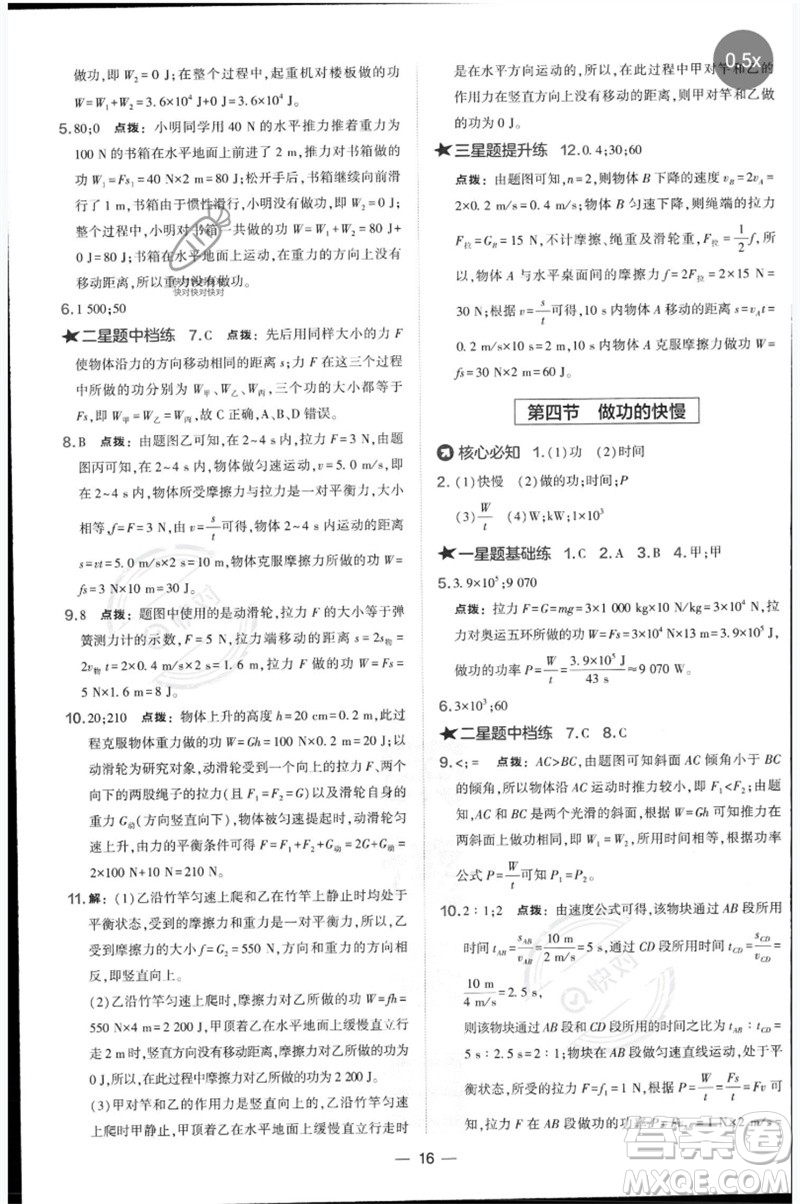 做功,即 W₂=0 J;在整个过程中,起重机对楼板做的功
W=W₁+W₂=3.6×10⁴ J+0 J=3.6×10⁴ J。
5.80;0 点拨:小明同学用 40 N 的水平推力推着重力为
100 N 的书箱在水平地面上前进了 2 m,推力对书箱做
的功 W₁=Fs₁=40 N×2 m=80 J;松开手后,书箱继续向前滑
行了 1 m,书箱由于惯性滑行,小明没有做功,即 W₂=
0 J。故小明对书箱一共做的功 W=W₁+W₂=80 J+0 J=
80 J。书箱在水平地面上运动,在重力的方向上没有
移动距离,所以重力没有做功。
6.1 500;50
★二星题中档练 7.C 点拨:先后用同样大小的力 F
使物体沿力的方向移动相同的距离 s;力 F 在这三个过程
中所做的功分别为 W甲、W乙、W丙,它们的大小都等于
Fs,即 W甲=W乙=W丙,故 C 正确,A、B、D 错误。
8.B 点拨:由题图乙可知,在 2~4 s 内,拉力 F=3 N;由题
图丙可知,在 2~4 s 内,物体做匀速运动,v=5.0 m/s,则
在 2~4 s 内,物体所受摩擦力与拉力是一对平衡力,大小
相等,f=F=3 N,由 v=s/t可得,物体 2~4 s 内运动的距离
s=vt=5.0 m/s×2 s=10 m,物体克服摩擦力做的功 W=
fs=3 N×10 m=30 J。
9.8 点拨:题图中使用的是动滑轮,拉力 F 的大小等于弹
簧测力计的示数,F=5 N,拉力端移动的距离 s=2s物=
2v物t=2×0.8 m/s×1 s=1.6 m,拉力 F 做的功 W=Fs=
5 N×1.6 m=8 J。
10.20;210 点拨:物体上升的高度 h=20 cm=0.2 m,此过
程克服物体重力做的功 W=Gh=100 N×0.2 m=20 J;以
动滑轮为研究对象,动滑轮受到一个向上的拉力 F、向
下的两股绳子的拉力(合力是 F₁=2G)以及滑轮自身的
重力 G动(方向竖直向下),物体被匀速提起时,动滑轮匀
速上升,由力的平衡条件可得 F=F₁+G动=2G+G动=
2×100 N+10 N=210 N。
11.解:(1)乙沿竹竿匀速上爬和乙在竹竿上静止时均处于
平衡状态,受到的摩擦力和重力是一对平衡力,乙上爬时
受到的摩擦力的大小 f=G=550 N,方向与重力的方向相
反,即竖直向上。
(2)乙沿竹竿匀速上爬时,摩擦力对乙所做的功 W=fh=
550 N×4 m=2 200 J,甲顶着乙在水平地面上缓慢直立行
走时,竖直方向没有移动距离,所以甲顶着乙缓慢直立行
走时,竖直方向所做的功为 0,则甲对竿和乙的作用力在
竖直方向上总共所做的功为 2 200 J。
(3)甲对竿和乙的作用力是竖直方向的,乙沿竹竿匀速
上爬甲静止时,以及甲顶着乙在水平地面上静止行走时
是在水平方向运动的,所以,在此过程中甲对竿和乙的
作用力在竖直方向上没有移动的距离,则甲对竿和乙做
的功为 0 J。
★三星题提升练 12.0.4;30;60
点拨:由题图可知,n=2,则物体 B 下降的速度 vB=2vA=
2×0.2 m/s=0.4 m/s;物体 B 匀速下降,则绳端的拉力
F拉=GB=15 N,不计摩擦、绳重及滑轮重,F拉=1/2 f,所
以,物体 A 与水平桌面间的摩擦力 f=2F拉=2×15 N=
30 N;根据 v=s/t可得,物体 A 移动的距离 s=vAt=
0.2 m/s×10 s=2 m,则物体 A 克服摩擦力做功 W=
fs=30 N×2 m=60 J。
第四节 做功的快慢
核心必知 1.(1)功 (2)时间
2.(1)快慢 (2)做的功;时间;P
(3)W/t (4)W;kW;1×10³
★一星题基础练 1.C 2.A 3.B 4.甲;甲
5.3.9×10⁵;9 070
点拨:拉力 F=G=mg=3×1 000 kg×10 N/kg=3×10⁴ N,拉
力对奥运五环所做的功 W=Fs=3×10⁴ N×13 m=3.9×10⁵ J,
做功的功率 P=W/t=3.9×10⁵ J/43 s≈9 070 W。
6.3×10³;60
★二星题中档练 7.C 8.C
9.<;= 点拨:AC>BC,由题图可知斜面 AC 倾角小于 BC
的倾角,所以物体沿 AC 运动时推力较小,即 F₁<F₂;由题
意知,AC、BC 是两个光滑的斜面,根据 W=Gh 可知推力在
两斜面上做功相同,即 W₁=W₂,因为所用时间相等,根据
公式 P=W/t可知 P₁=P₂。
10.2:1;2 点拨:由速度公式可得,该物块通过 AB 段所用
时间 tAB=sAB/vAB=10 m/2 m/s=5 s,通过 CD 段所用时间 tCD=sCD/vCD=
10 m/4 m/s=2.5 s,
则该物块通过 AB 段和 CD 段所用的时间之比为 tAB:tCD=
5 s:2.5 s=2:1;物块在 AB 段做匀速直线运动,处于平
衡状态,所受的拉力为 F=f₁=1 N,根据 P=W/t=Fs/t=Fv 可
知,拉力 F 在 AB 段做功的功率
16
0.5x
快对快对快对
快对
答案圈
MXQE.COM